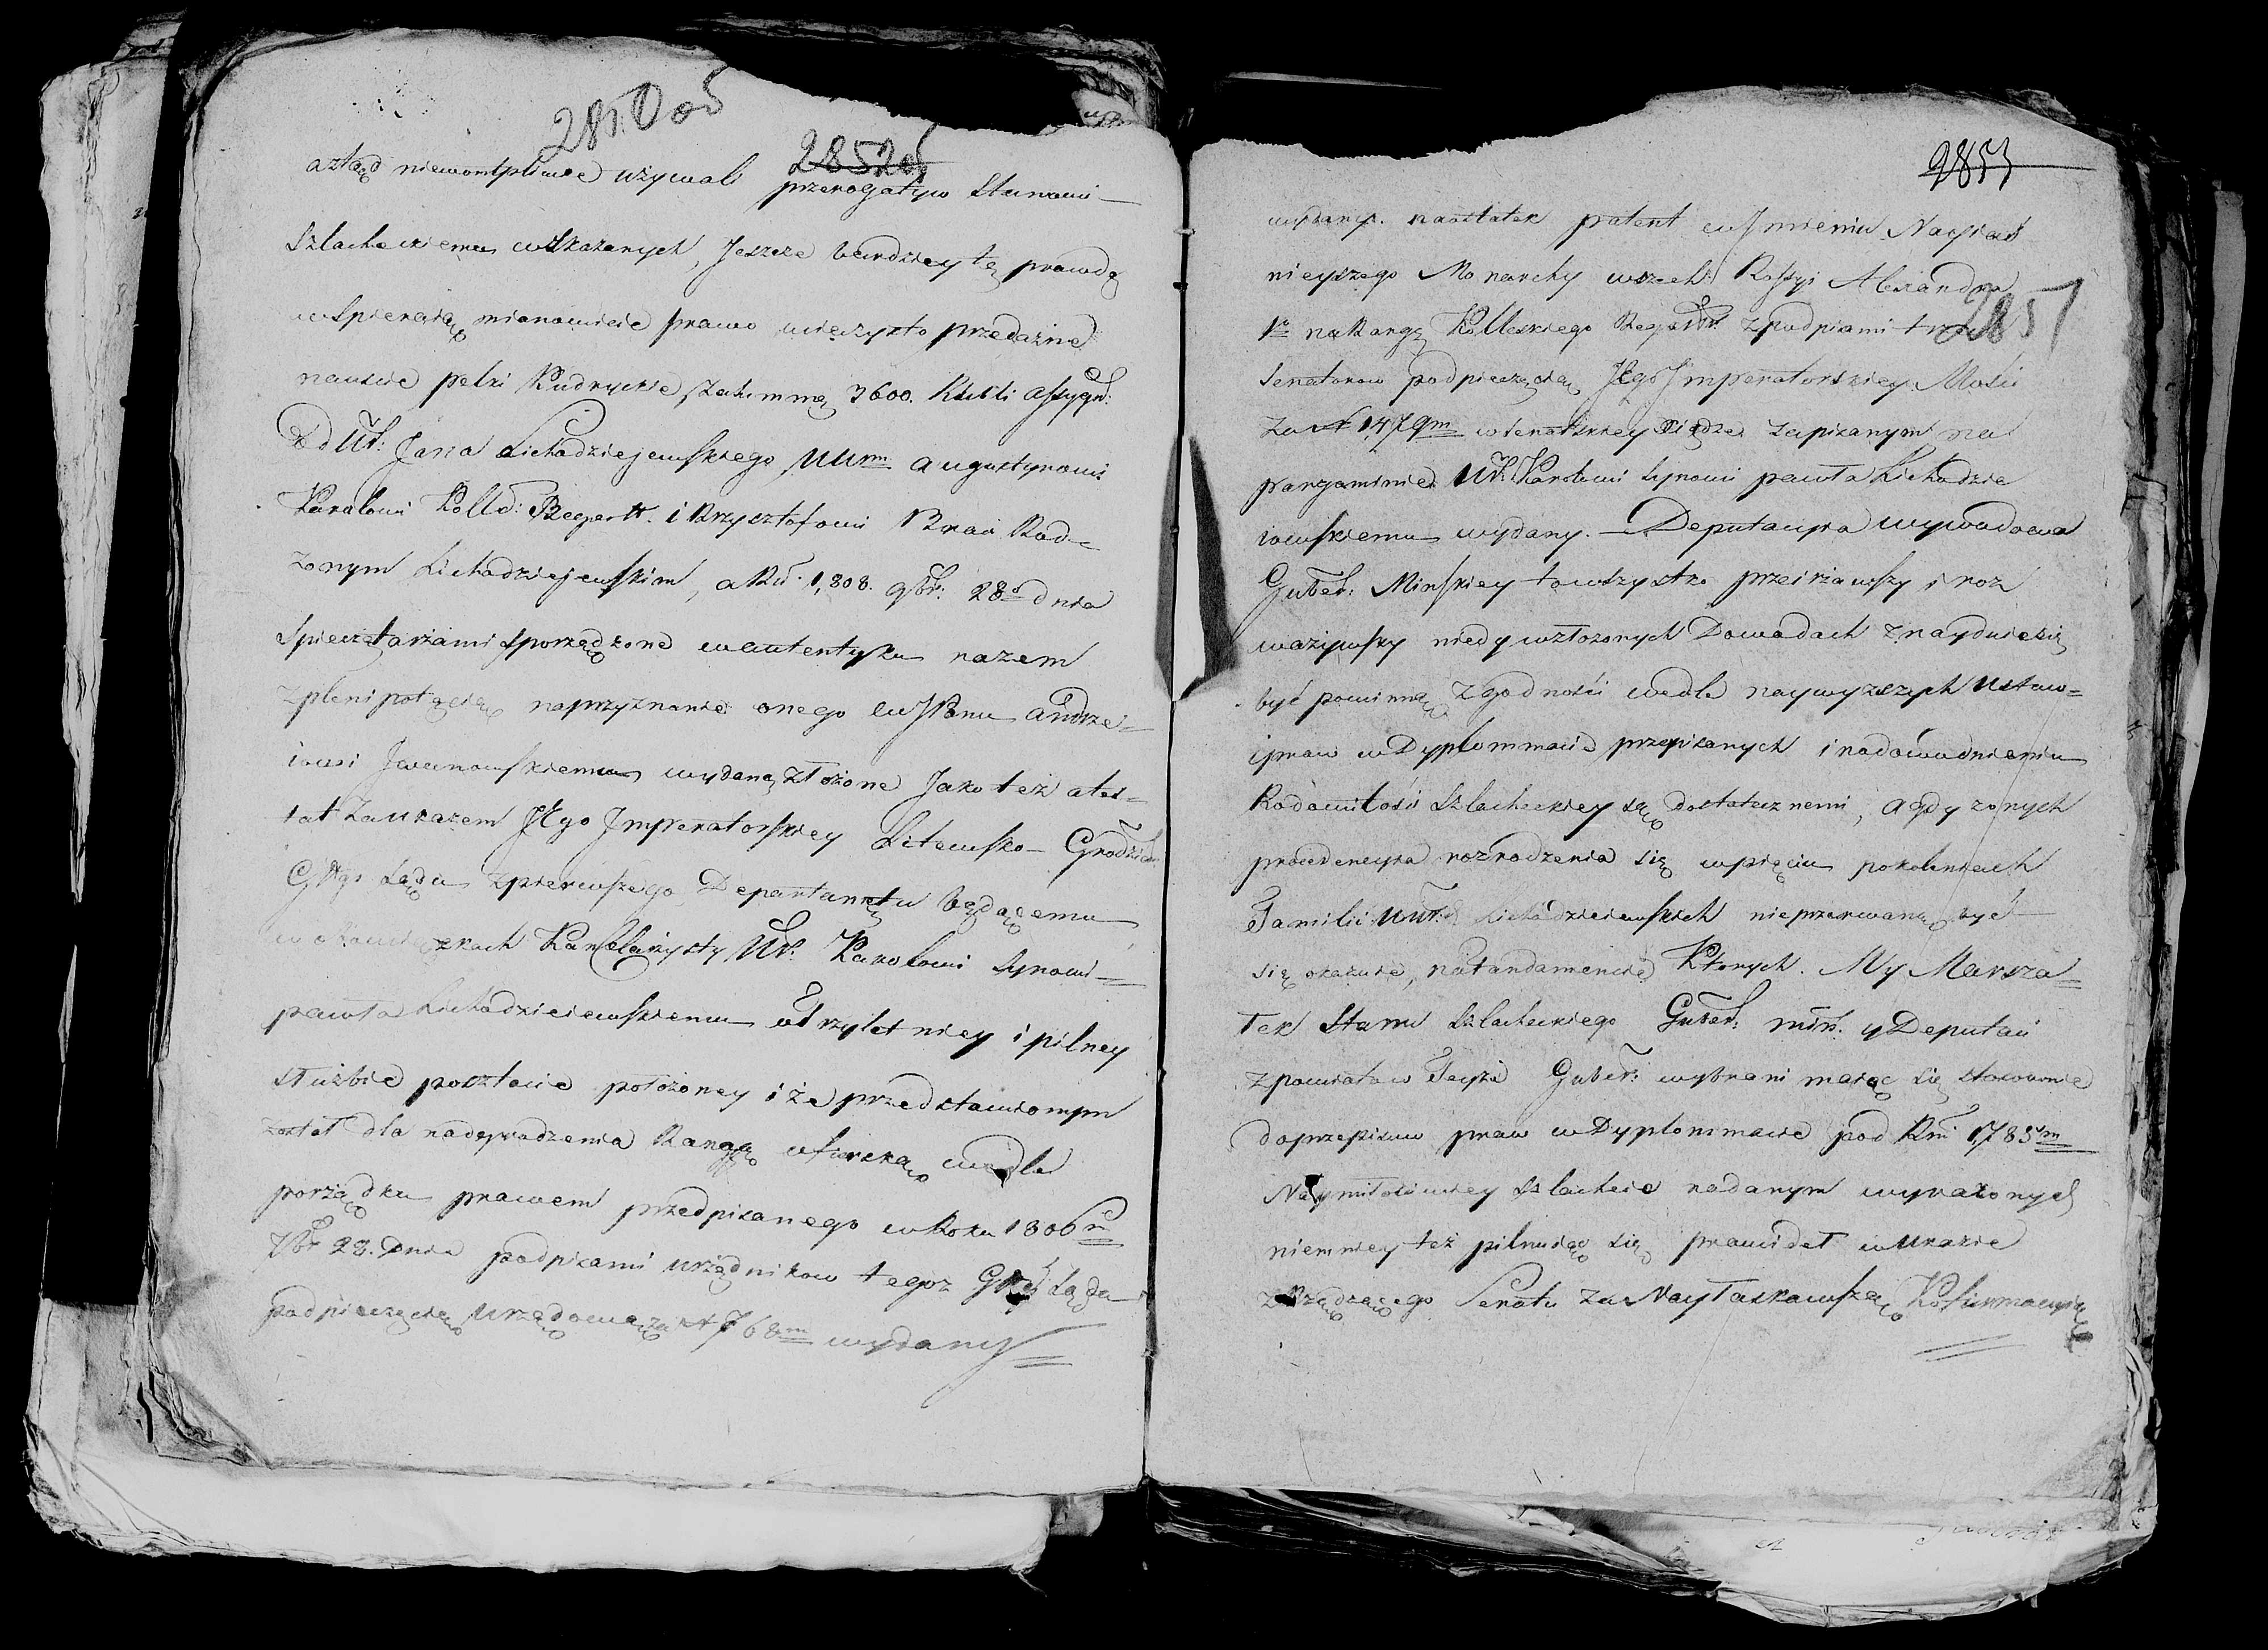 2850 об
2852 об
a ztąd niewomtpliwie używali przerogatyw Stanowi
Szlacheckiemu wskazanych, Jeszcze bardziey tę prawdę
wspieraią mianowicie prawo wieczysto przedażne
Kudryckie za summę 3600. Rubli assygn:
od Ur: Jana Lichodziejewskiego UUrm Augustynowi
Karolowi Kolle: Regestr. i Krzysztofowi Braci Rod-
zonym Lichodziejewskim, a Ru. 1,808. 9br: 28 dnia
s pieczętarzami sporządzone w autentyku razem
z plenipotęcią na przyznanie onego JPanu Andrze-
iowi Iwanowskiemu wydaną złożone Jako też ates-
tat za ukazem JEgo Imperatorskiey Litewsko-Grodzień
Głłgo Sądu z pierwszego Departamętu będącemu
w obowiązkach Kancelarzysty Ur. Karolowi Synowi
pawła Lichodzieiewskiemu o trzyletniey i pilney
służbie położoney i że przedstawionym
został dla nadgrodzenia Rangą wedle
porządku prawem przedpisanego w Roku 1806m
7br 28. Dnia z podpisami urzędnikow tegoz Głłgo Sądu
pod pieczęcią urzędową za N 768m wydany
2853
2851
wydany. naostatek patent w Jmieniu Nayjaś
nieyszego Monarchy wszech Rossyi Alexandra
1o na Rangę Kolleskiego Regestr: z podpisami trzech
Senatorow pod pieczęcią JEgo Jmperatorskiey Mości
za N 1479m w Senatskiey Xiędze zapisanym na
pargaminie Ur. Karolowi Synowi pawła Lichodzie
iowskiemu wydany. — Deputacya wywodowa
Guber: Minskiey to wszystko przeirzawszy i roz
ważywszy niedy w złożonych Dowodach znayduie się
być powinną zgodności wedle naywyższych Ustaw=
i praw w Dyplommacie przepisanych i na dowodnienia
Rodowitości szlacheckiey są dostatecznemi, a gdy z onych
procedencya rozrodzenia się w pięciu pokoleniach
Familii UUr: Lichodzieiewskich nieprzerwaną być
się okazuie, na fundamencie Ktorych. My Marsza=
łek Stanu Szlacheckiego Guber: mińs: y Deputaci
z powiatow Teyże Guber: wybrani maiąc się stosownie
do przepisow praw w Dyplommacie pod Rm 1785m
Naymiłościwiey szlachcie nadanym wyrażonych
niemniey też pilnuiąc się prawideł w Ukazie
z Rządzącego Senatu za Nayłaskawszą Kofirmacyią